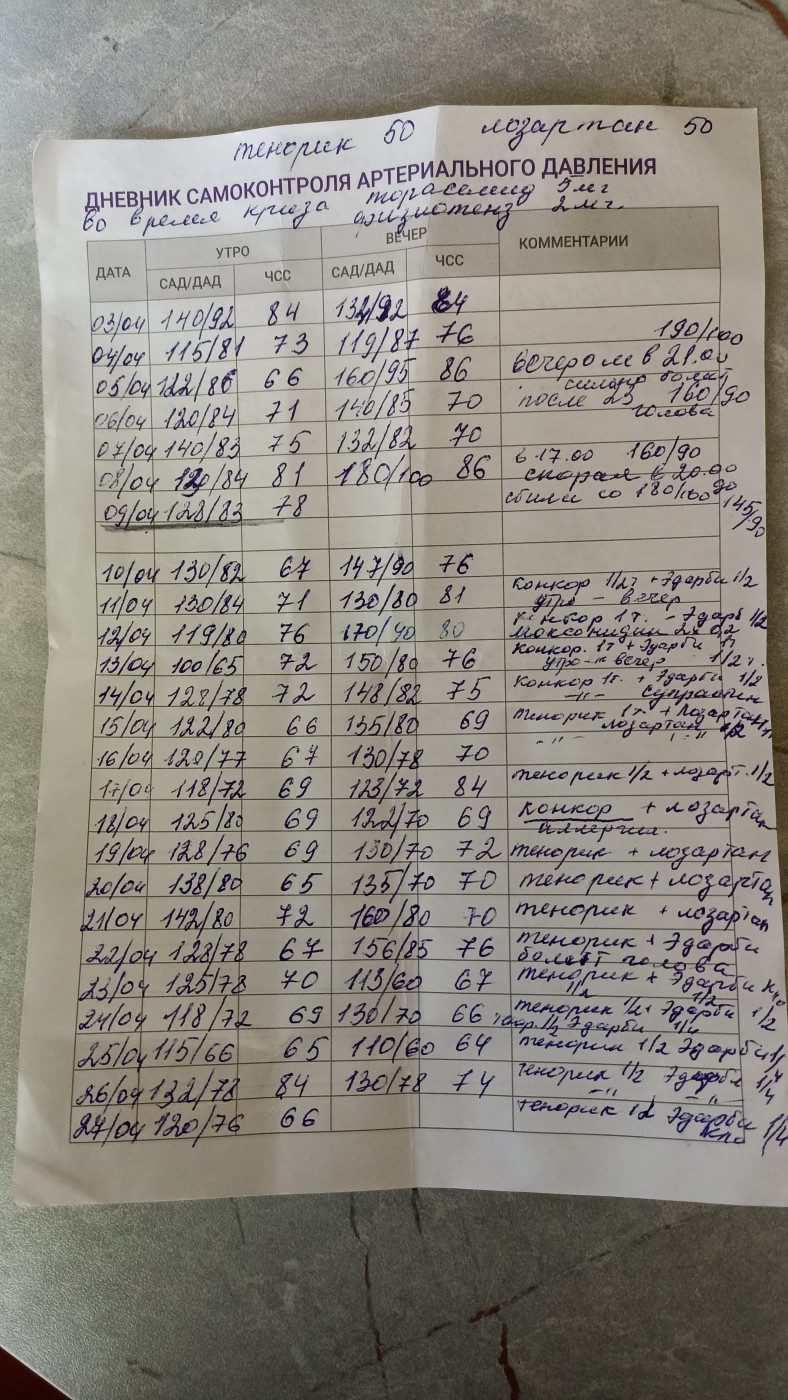 тенорик 50 лозартан 50
ДНЕВНИК САМОКОНТРОЛЯ АРТЕРИАЛЬНОГО ДАВЛЕНИЯ
во время криза торасемид 5мг
физиотенз 2мг.
ДАТА УТРО ВЕЧЕР КОММЕНТАРИИ
САД/ДАД ЧСС САД/ДАД ЧСС
03/04 140/92 84 132/92 84
04/04 115/81 73 119/87 76 190/100
05/04 122/86 66 160/95 86 вечером в 21.00
сильно болит
06/04 120/84 71 140/85 70 после 23 160/90
голова
07/04 140/83 75 132/82 70
08/04 120/84 81 180/100 86 в 17.00 160/90
скорая в 20.00
09/04 128/83 78 сбили со 180/100 90
145/90
10/04 130/82 67 147/90 76
11/04 130/84 71 130/80 81 Конкор 1/2т + Эдарби 1/2
утро - вечер
12/04 119/80 76 170/90 80 Конкор 1т. - Эдарб 1/2
моксонидин 2х 0,2
13/04 100/65 72 150/80 76 Конкор. 1т + Эдарби 1т
утро - вечер 1/2т.
14/04 128/78 72 148/82 75 Конкор 1т. + Эдарби 1/2
-"- супрастин
15/04 122/80 66 135/80 69 тенорик 1т. + Лозартан
лозартан 1/2
16/04 120/77 67 130/78 70 -"- -"-
17/04 118/72 69 123/72 84 тенорик 1/2 + лозарт. 1/2
18/04 125/80 69 122/70 69 Конкор + лозартан
аллергия.
19/04 128/76 69 130/70 72 тенорик + лозартан
20/04 138/80 65 135/70 70 тенорик + лозартан
21/04 142/80 72 160/80 70 тенорик + лозартан
22/04 128/78 67 156/85 76 тенорик + Эдарби
болит голова
23/04 125/78 70 113/60 67 тенорик + Эдарби Кло
1/2 1/2
24/04 118/72 69 130/70 66 тенорик 1/2+ Эдарби 1/2
Эдарби 1/4
25/04 115/66 65 110/60 64 тенорик 1/2 Эдарби 1/4
26/04 132/78 84 130/78 74 тенорик 1/2 Эдарби 1/4
-"- -"-
27/04 120/76 66 тенорик 1/2 Эдарби 1/4
Кло